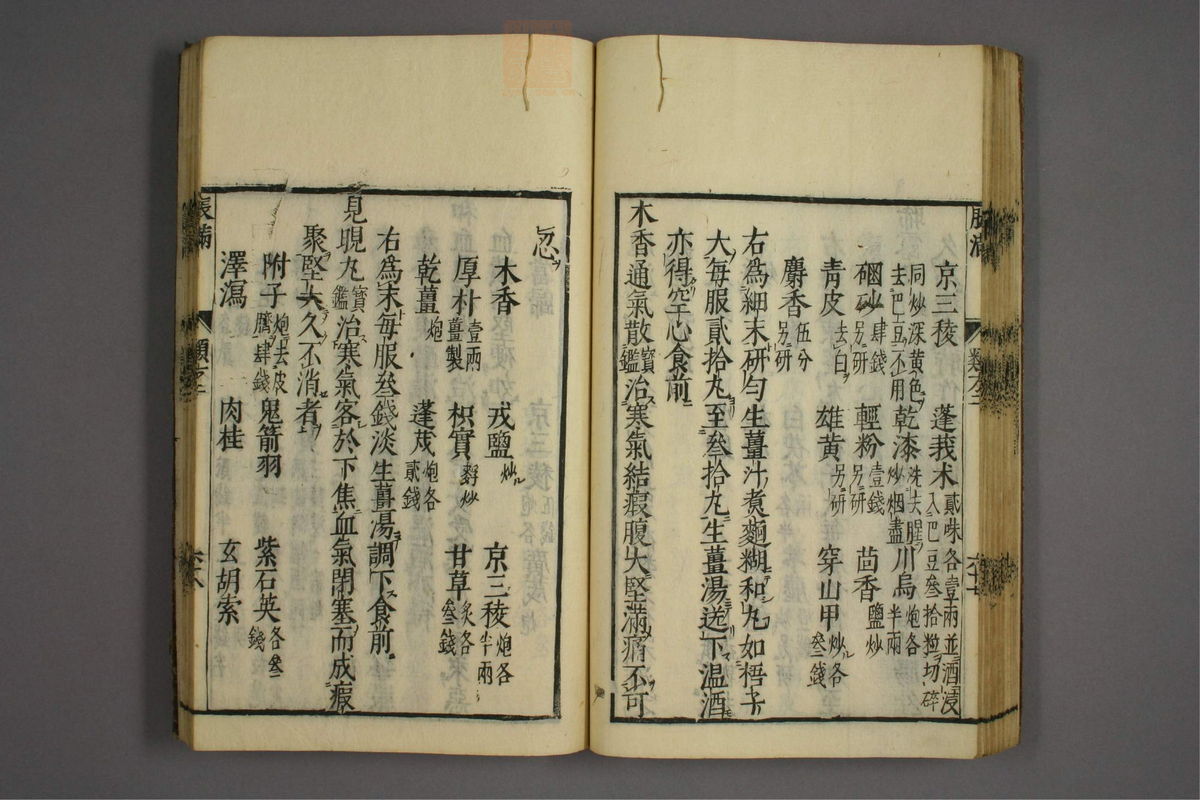 京三稜 蓬莪朮貳味各壹兩並酒浸
同炒深黄色去巴豆不用 入巴豆叄拾粒切碎
乾漆洗去腥炒烟盡 川烏炮各半兩
硇砂肆錢另研 輕粉壹錢另研 茴香鹽炒
青皮去白 雄黄另研 穿山甲炒各叄錢
麝香伍分另研
右為細末研勻生薑汁煮麵糊和丸如梧子
大每服貳拾丸至叄拾丸生薑湯送下温酒
亦得空心食前
木香通氣散寳鑑治寒氣結瘕腹大堅滿痛不可
忍
木香 戎鹽炒 京三稜炮各半兩
厚朴壹兩薑製 枳實麸炒 甘草炙各叄錢
乾薑炮 蓬莪炮各貳錢
右為末每服叄錢淡生薑湯調下食前
見晛丸寳鑑治寒氣客於下焦血氣閉塞而成瘕
聚堅大久不消者
附子炮去皮臍肆錢 鬼箭羽 紫石英各叄錢
澤瀉 肉桂 玄胡索
脹滿 類 六十七
脹滿 類 六十八